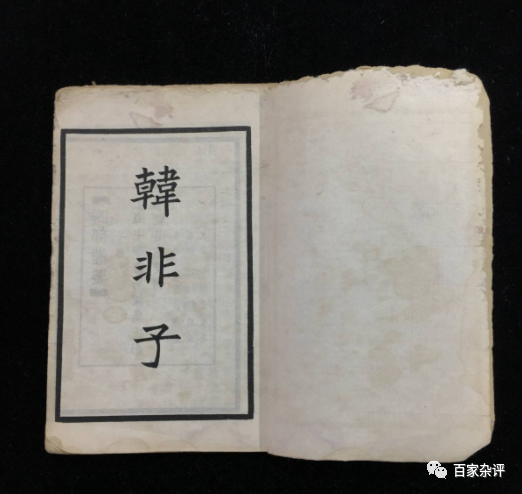 韓非子
百家杂评